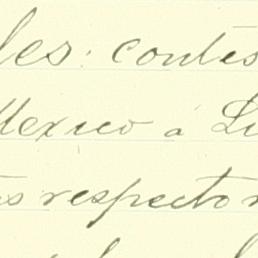 les: contes
Mexico á Lu
s respecto